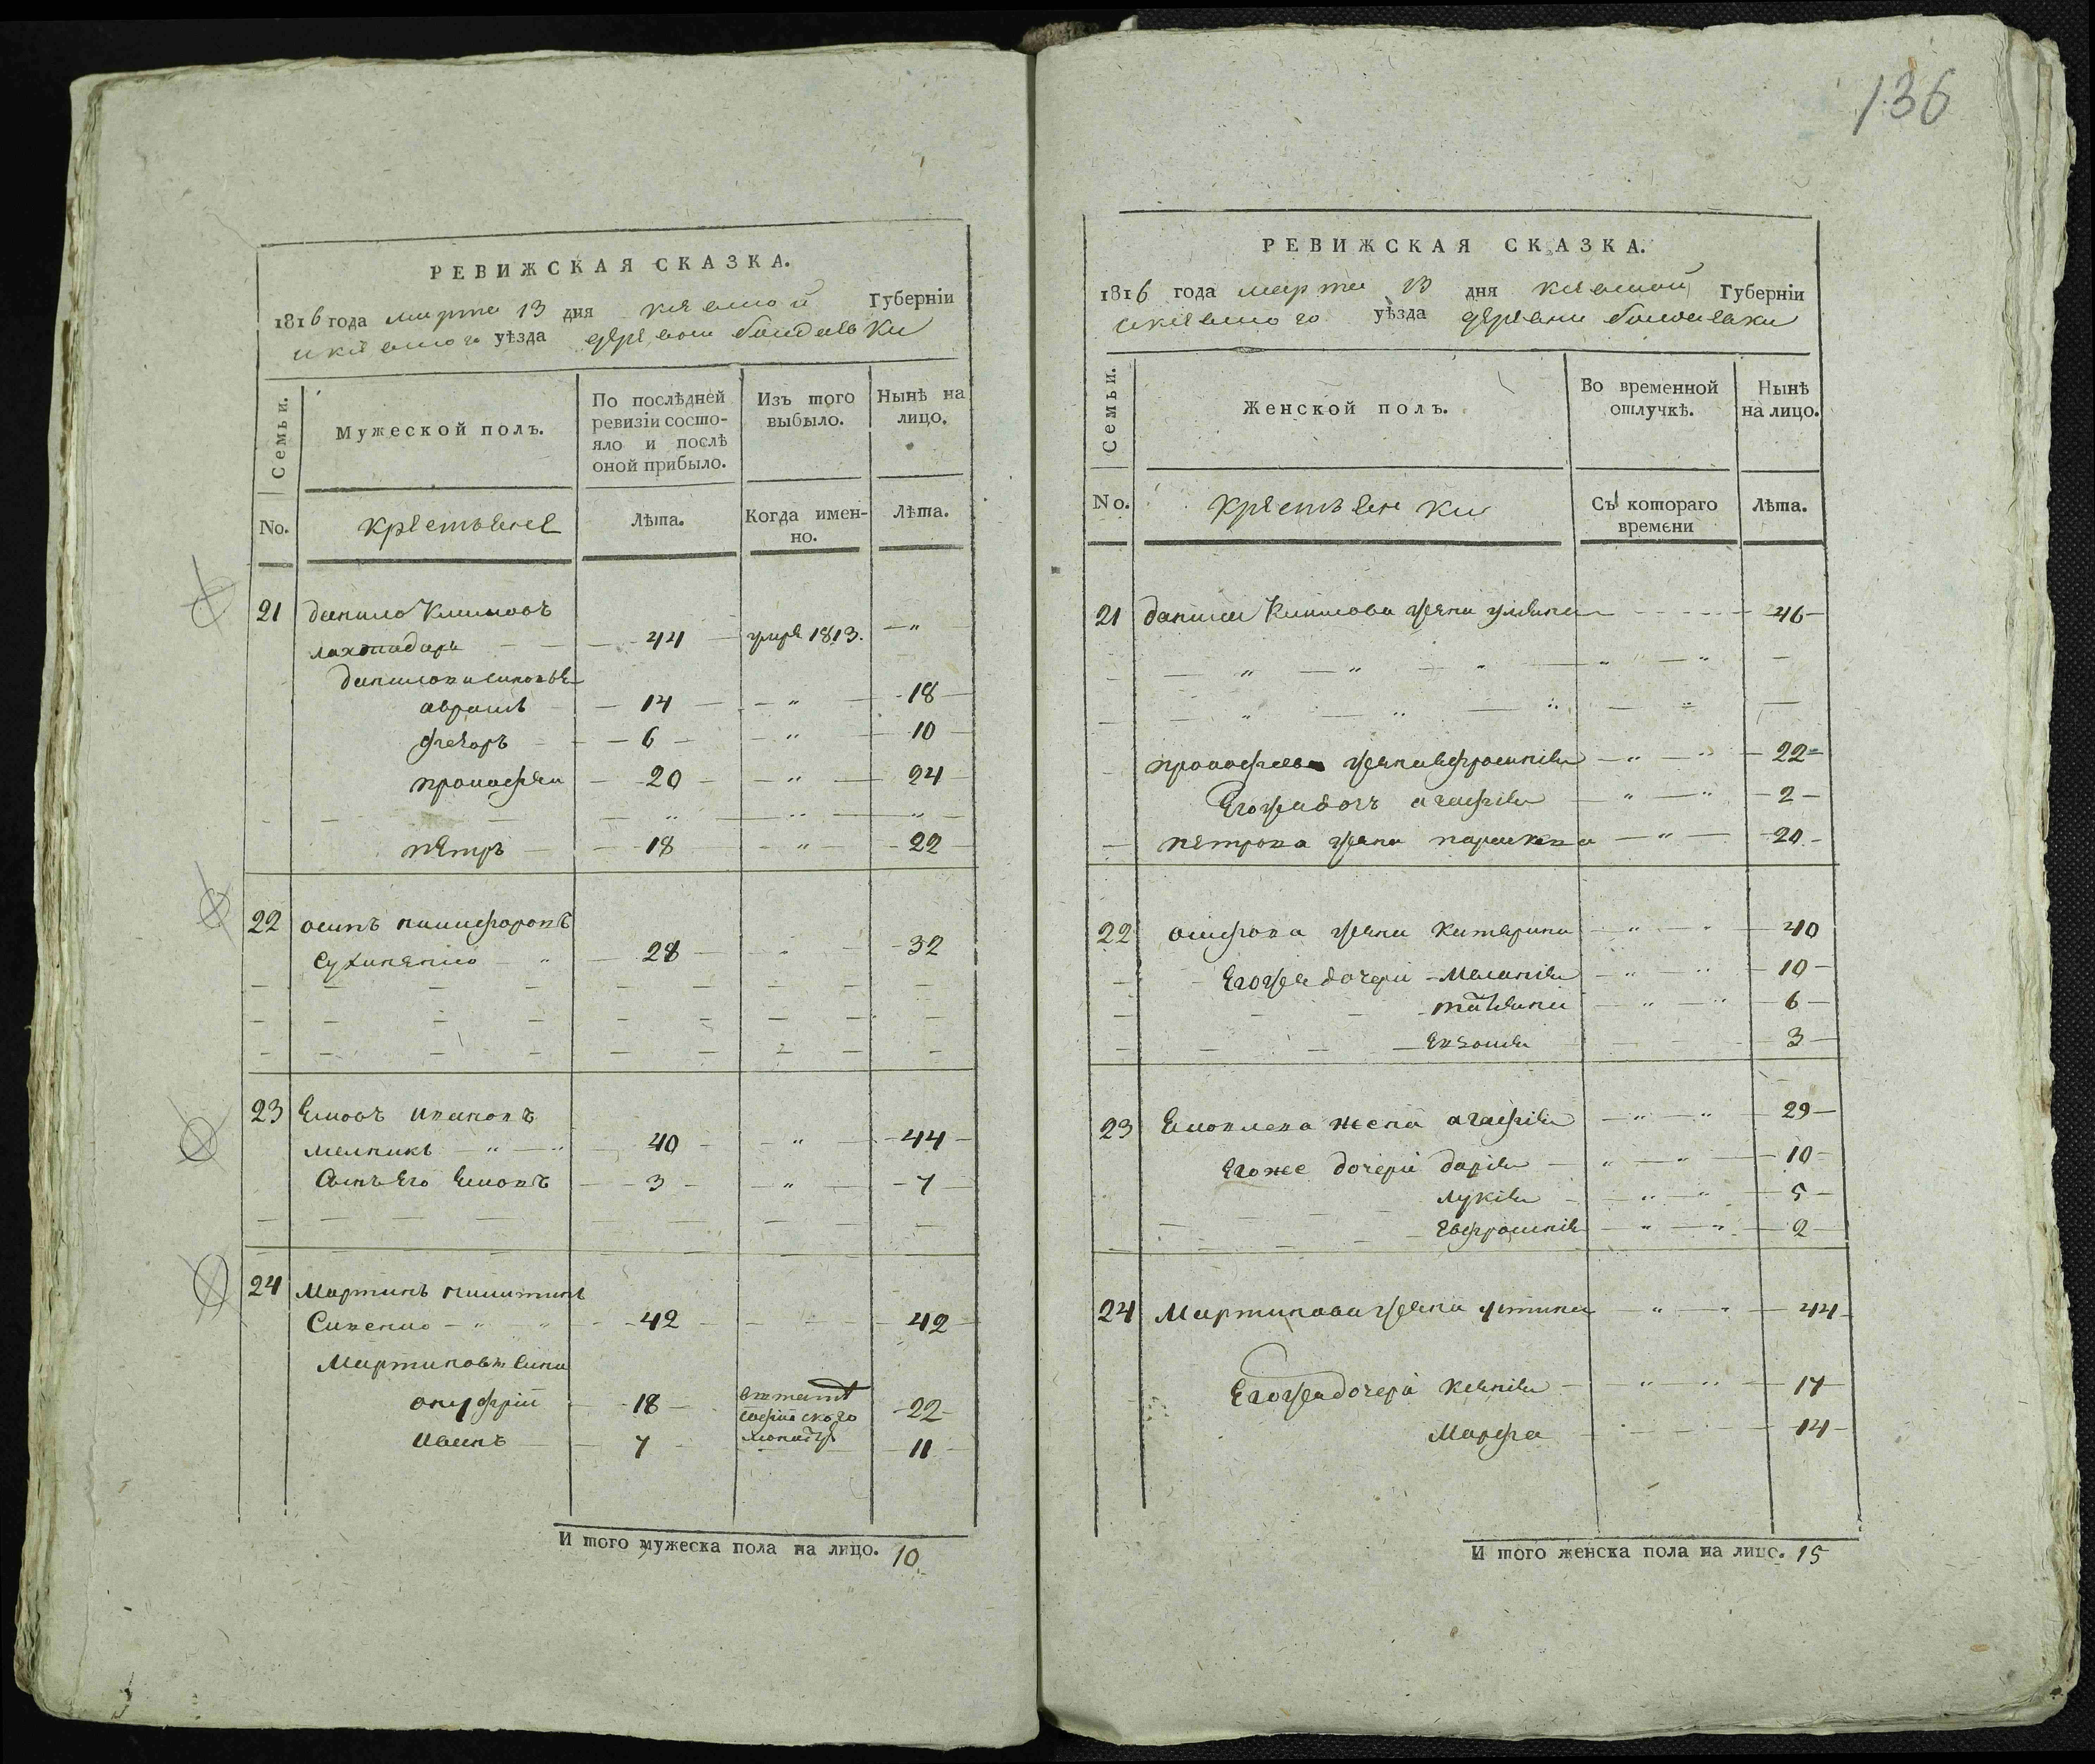 РЕВИЖСКАЯ СКАЗКА.
1816 года марта 13 дня киевской Губерніи
киевского уѣзда деревни
Семьи.
Мужеской полъ.
По послѣдней ревизіи состояло и послѣ оной прибыло.
Изъ того выбыло.
Нынѣ на лицо.
No.
крестьяне
Лѣта.
Когда именно.
Лѣта.
21 данило Климовъ
44 умре 1813. "
даниловы синовья
14 " 18
федоръ 6 " 10
прокофей 20 " 24
петръ 18 " 22
22 осипъ никифоровъ
28 " 32
23 Ивановъ
мелникъ 40 " 44
Сынъ Его 3 " 7
24 Мартинъ никитинъ
Сивенко 42 42
Мартиновы сини
онуфрій 18 22
Иванъ 7 11
И того мужеска пола на лицо. 10
136
РЕВИЖСКАЯ СКАЗКА.
1816 года марта 13 дня киевской Губерніи
киевского уѣзда деревни
Семьи.
Женской полъ.
Во временной отлучкѣ.
Нынѣ на лицо.
No.
крестьянки
Съ котораго времени
Лѣта.
21 данила Климова жена уляна 46
прокофиева жена ефросинія " 22
Его же дочь агафія " 2
петрова жена параскева " 20
22 осифова жена катерина " 40
Его же дочери Меланія " 10
татіяна " 6
3
23 жена агафія " 29
Его же дочери дарія " 10
лукія " 5
Евфросинія " 2
24 Мартинова жена устина " 44
Его же дочери Ксенія " 17
Марфа 14
И того женска пола на лицо. 15